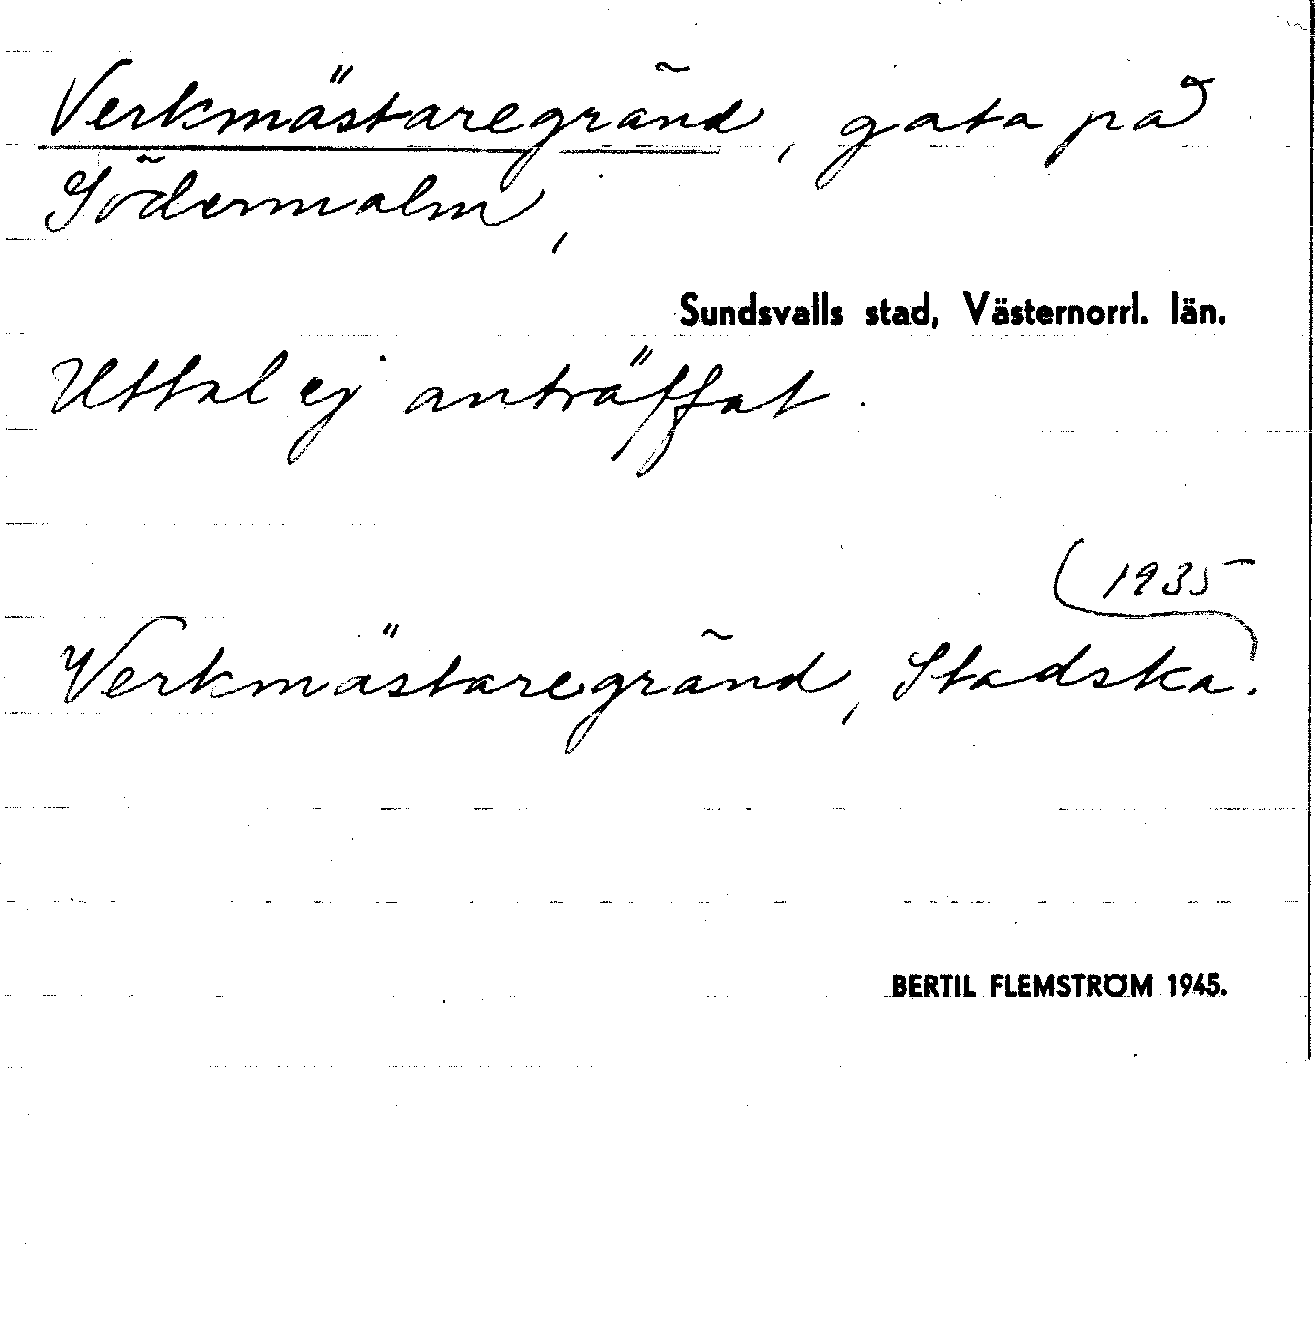 Verkmästaregränd, gata på
Södermalm,
Sundsvalls stad, Västernorrl. län.
Uttal ej anträffat.
1935
Verkmästaregränd, Stadska.
BERTIL FLEMSTRÖM 1945.